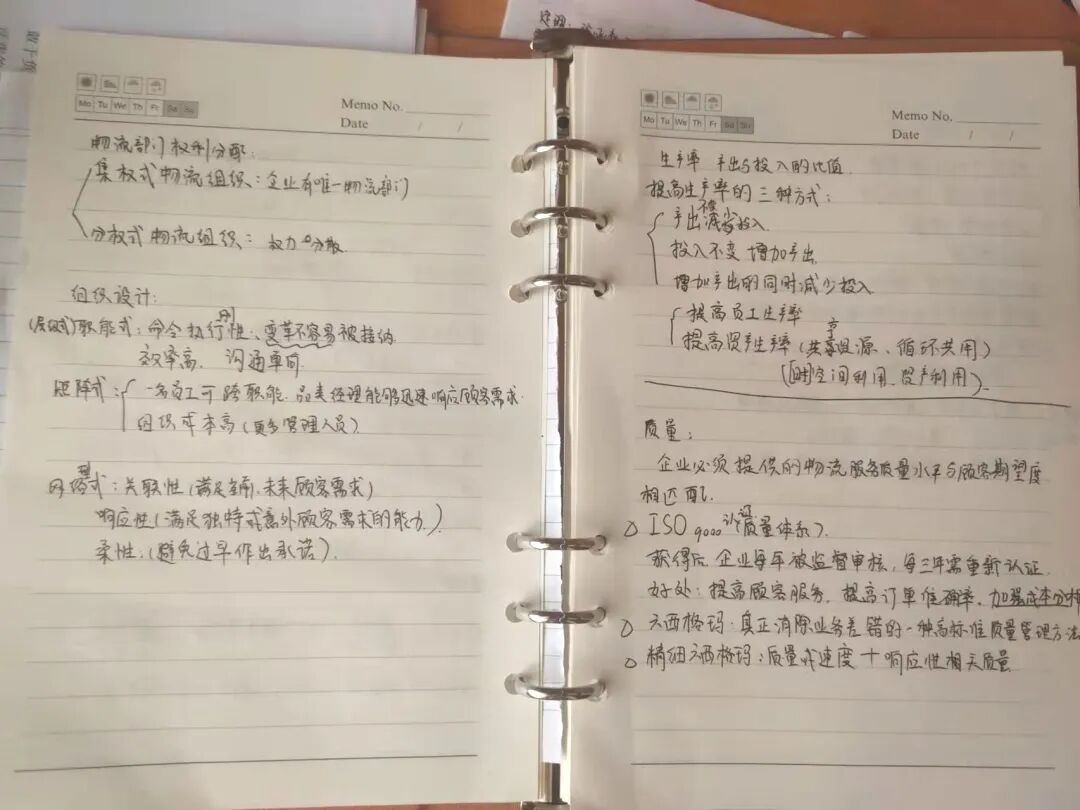 Mo Tu We Th Fr Sa Su
Memo No.
Date / /
物流部门权利分配:
集权式物流组织:企业有唯一物流部门
分权式物流组织:权力分散
组织设计:
(层级式)职能式:命令执行性、变革不容易被接纳
效率高、沟通单向
矩阵式:一名员工可跨职能、品类经理能够迅速响应顾客需求
组织成本高(更多管理人员)
网络式:关联性(满足当前、未来顾客需求)
响应性(满足独特或意外顾客需求的能力)
柔性:(避免过早作出承诺)
Mo Tu We Th Fr Sa Su
Memo No.
Date / /
生产率 产出与投入的比值
提高生产率的三种方式:
产出不变减少投入
投入不变 增加产出
增加产出的同时减少投入
提高员工生产率
提高资产生产率(共享资源、循环共用)
(时空间利用、资产利用)
质量:
企业必须提供的物流服务质量水平与顾客期望度
相匹配
ISO 9000认证(质量体系)
获得后,企业每年被监督审核,每三年需重新认证
好处:提高顾客服务、提高订单准确率、加强成本分析
六西格玛:真正消除业务差错的一种高标准质量管理方法
精细六西格玛:质量或速度+响应性相关质量